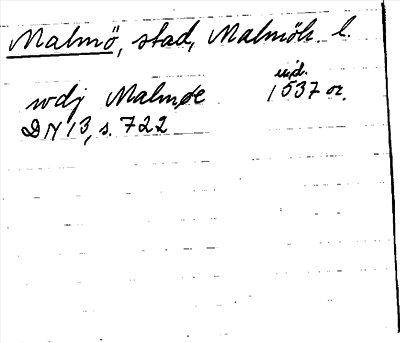 Malmö, stad, Malmöh. l.
wdj Malmøe 1537 or.
DN 13, s. 722